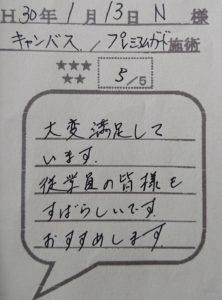 H.30年1月13日 N 様
キャンバス / プレミアムガード施術
★★★
★★
5/5
大変満足して
います.
従学員の皆様も
すばらしいです
おすすめします